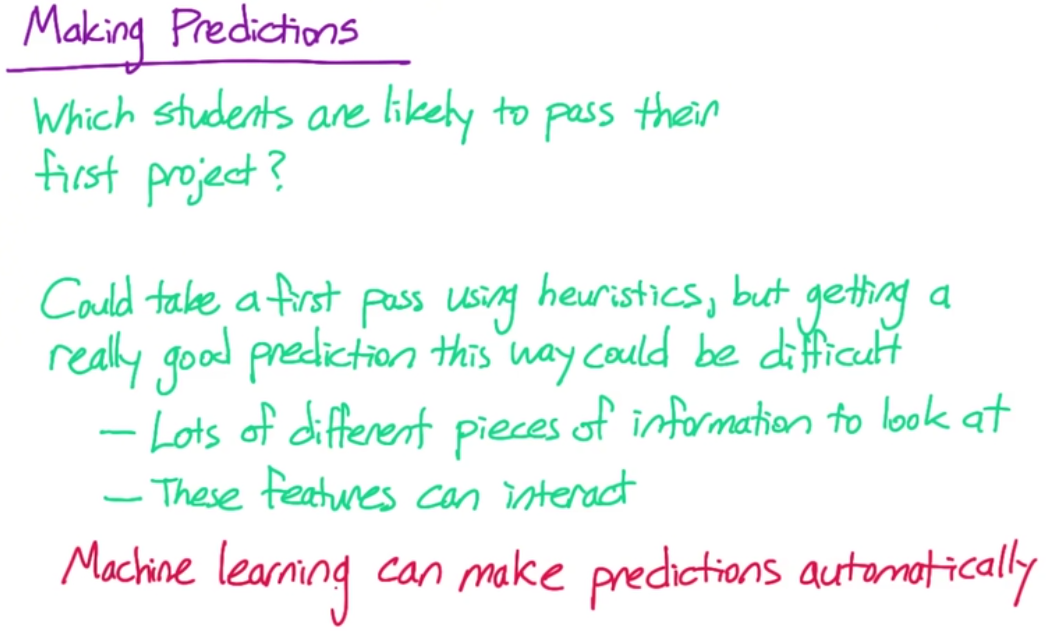 Making Predictions
Which students are likely to pass their
first project?
Could take a first pass using heuristics, but getting a
really good prediction this way could be difficult
– Lots of different pieces of information to look at
– These features can interact
Machine learning can make predictions automatically